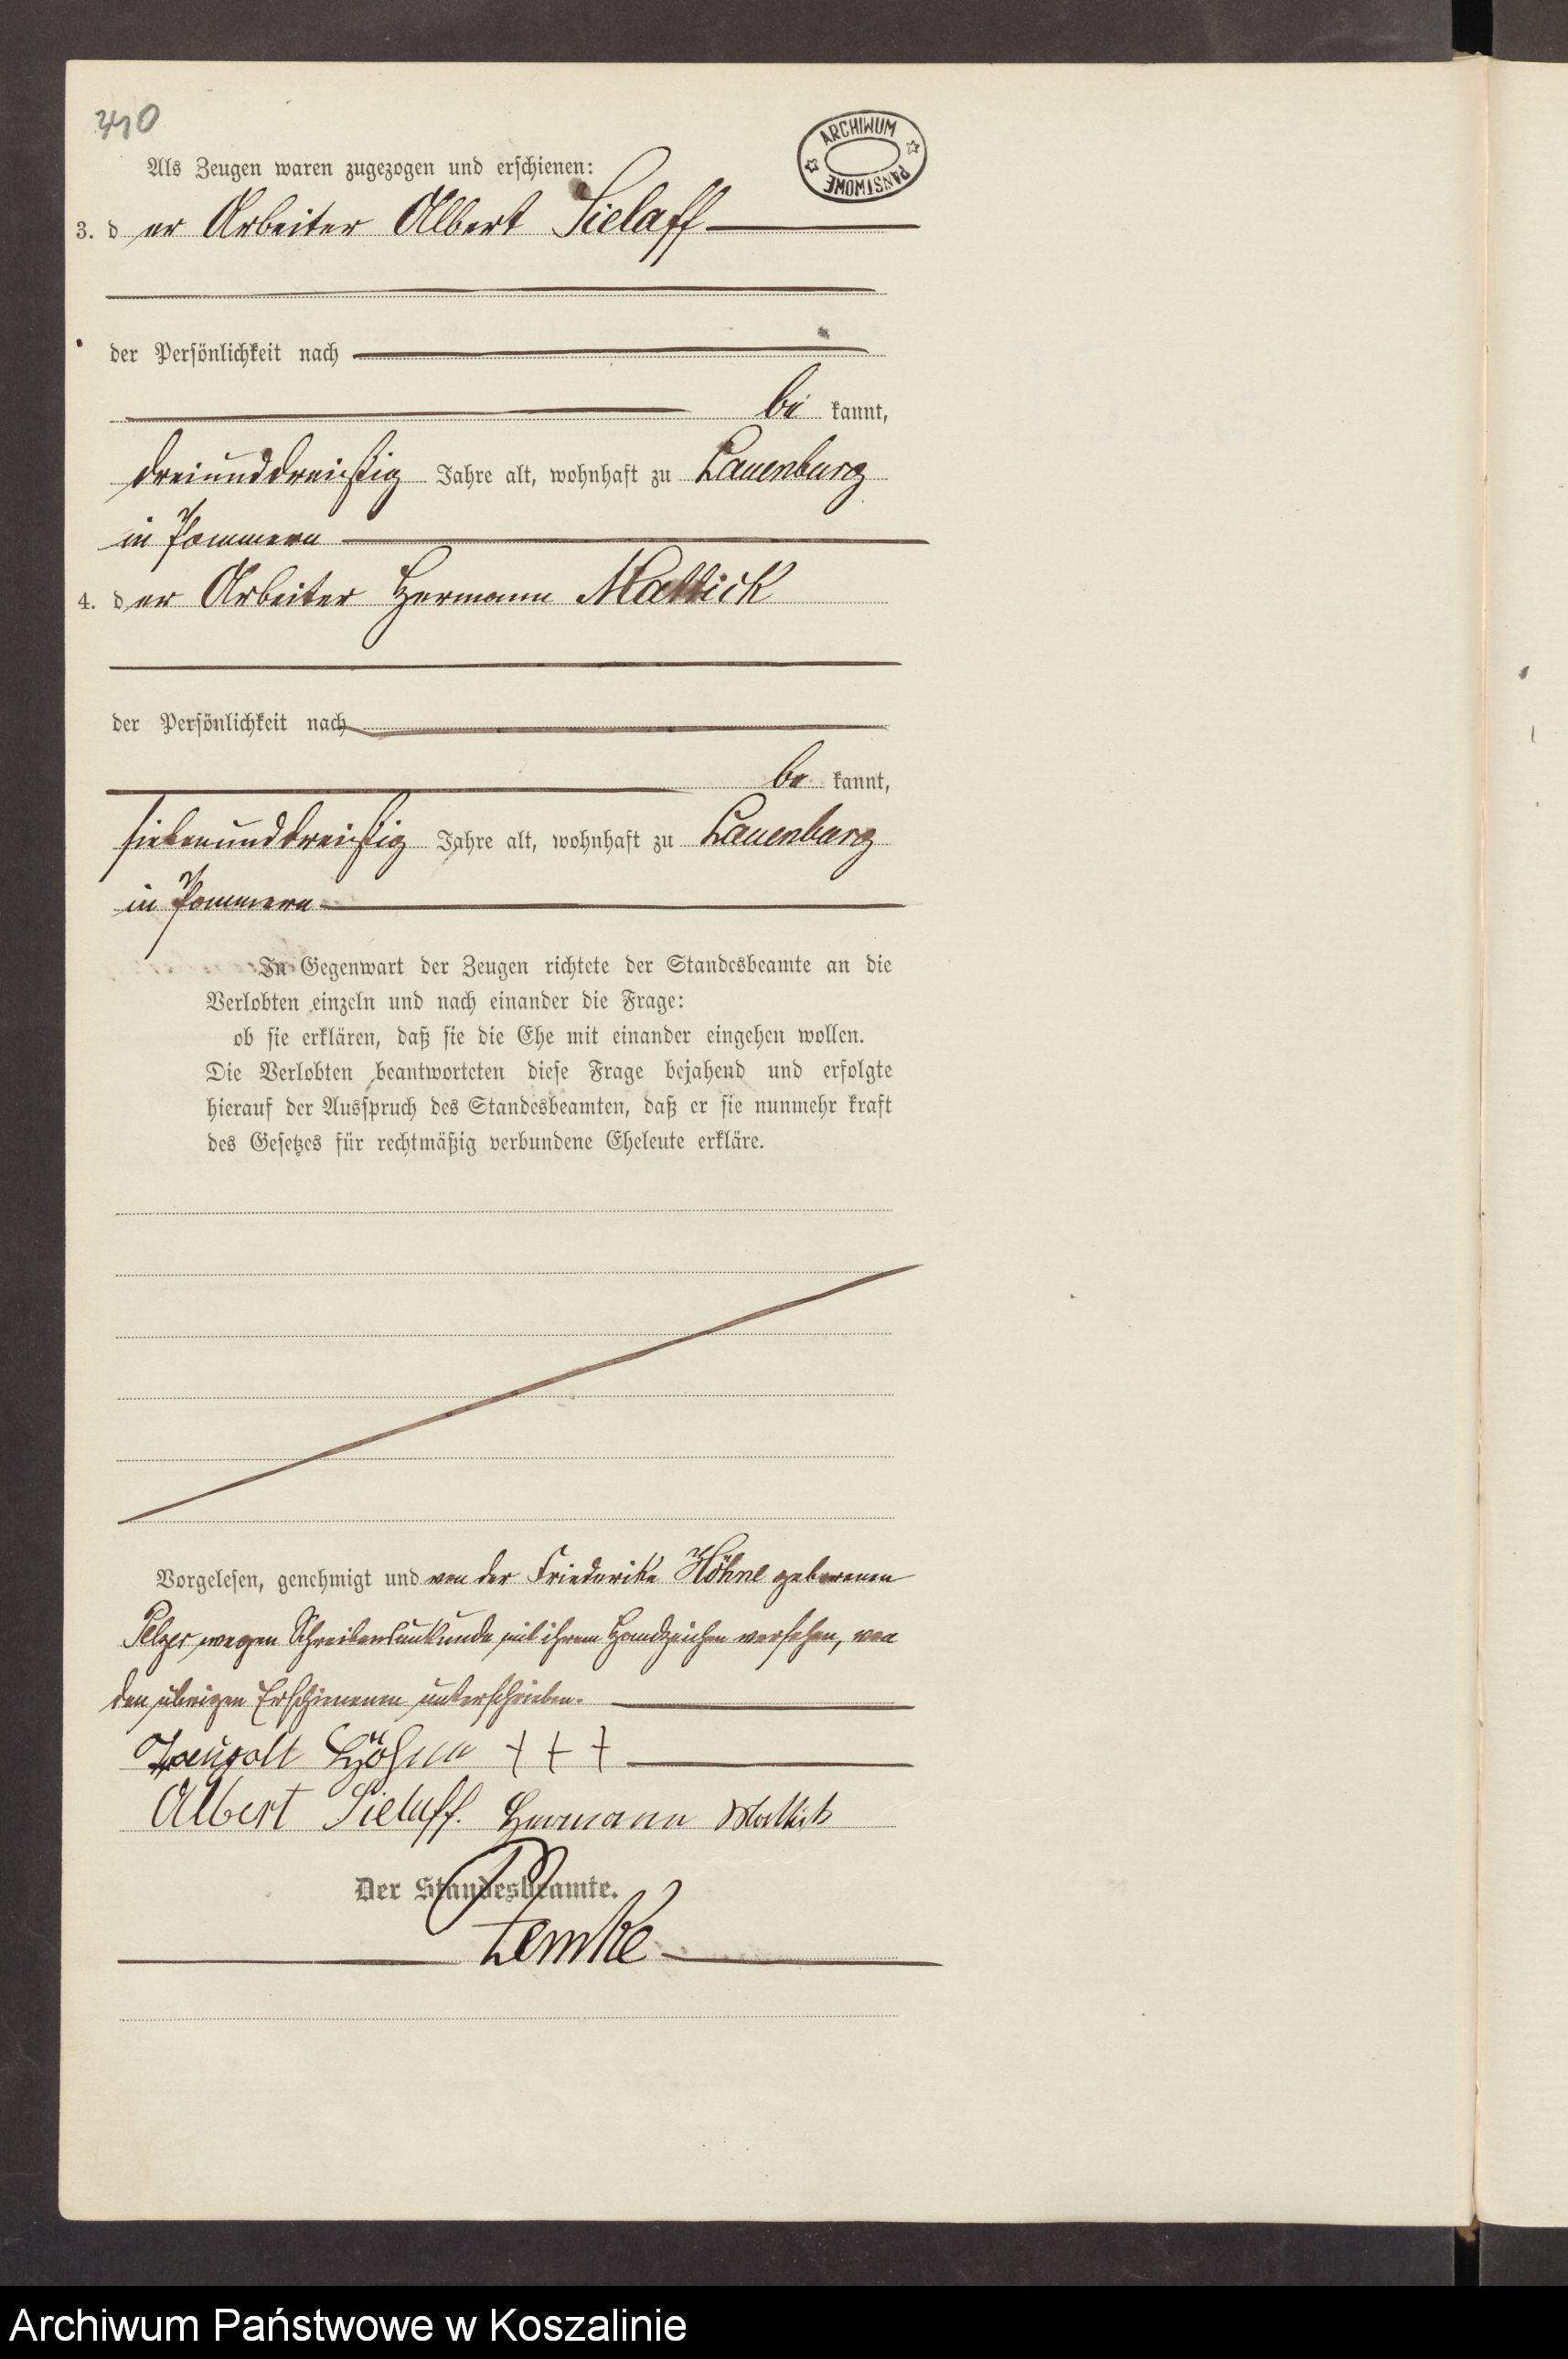 340
ARCHIWUM
PAŃSTWOWE
Als Zeugen waren zugezogen und erschienen:
3. d er Arbeiter Albert Sielaff
der Persönlichkeit nach
be kannt,
dreiunddreißig Jahre alt, wohnhaft zu Lauenburg
in Pommern
4. d er Arbeiter Hermann Mattick
der Persönlichkeit nach
be kannt,
siebenunddreißig Jahre alt, wohnhaft zu Lauenburg
in Pommern
In Gegenwart der Zeugen richtete der Standesbeamte an die
Verlobten einzeln und nach einander die Frage:
ob sie erklären, daß sie die Ehe mit einander eingehen wollen.
Die Verlobten beantworteten diese Frage bejahend und erfolgte
hierauf der Ausspruch des Standesbeamten, daß er sie nunmehr kraft
des Gesetzes für rechtmäßig verbundene Eheleute erkläre.
Vorgelesen, genehmigt und von der Friederike Höhne geborenen
Pelzer wegen Schreibensunkunde mit ihrem Handzeichen versehen, von
den übrigen Erschienenen unterschrieben.
Höhne + + +
Albert Sielaff. Hermann Mattick
Der Standesbeamte.
Lemke
Archiwum Państwowe w Koszalinie